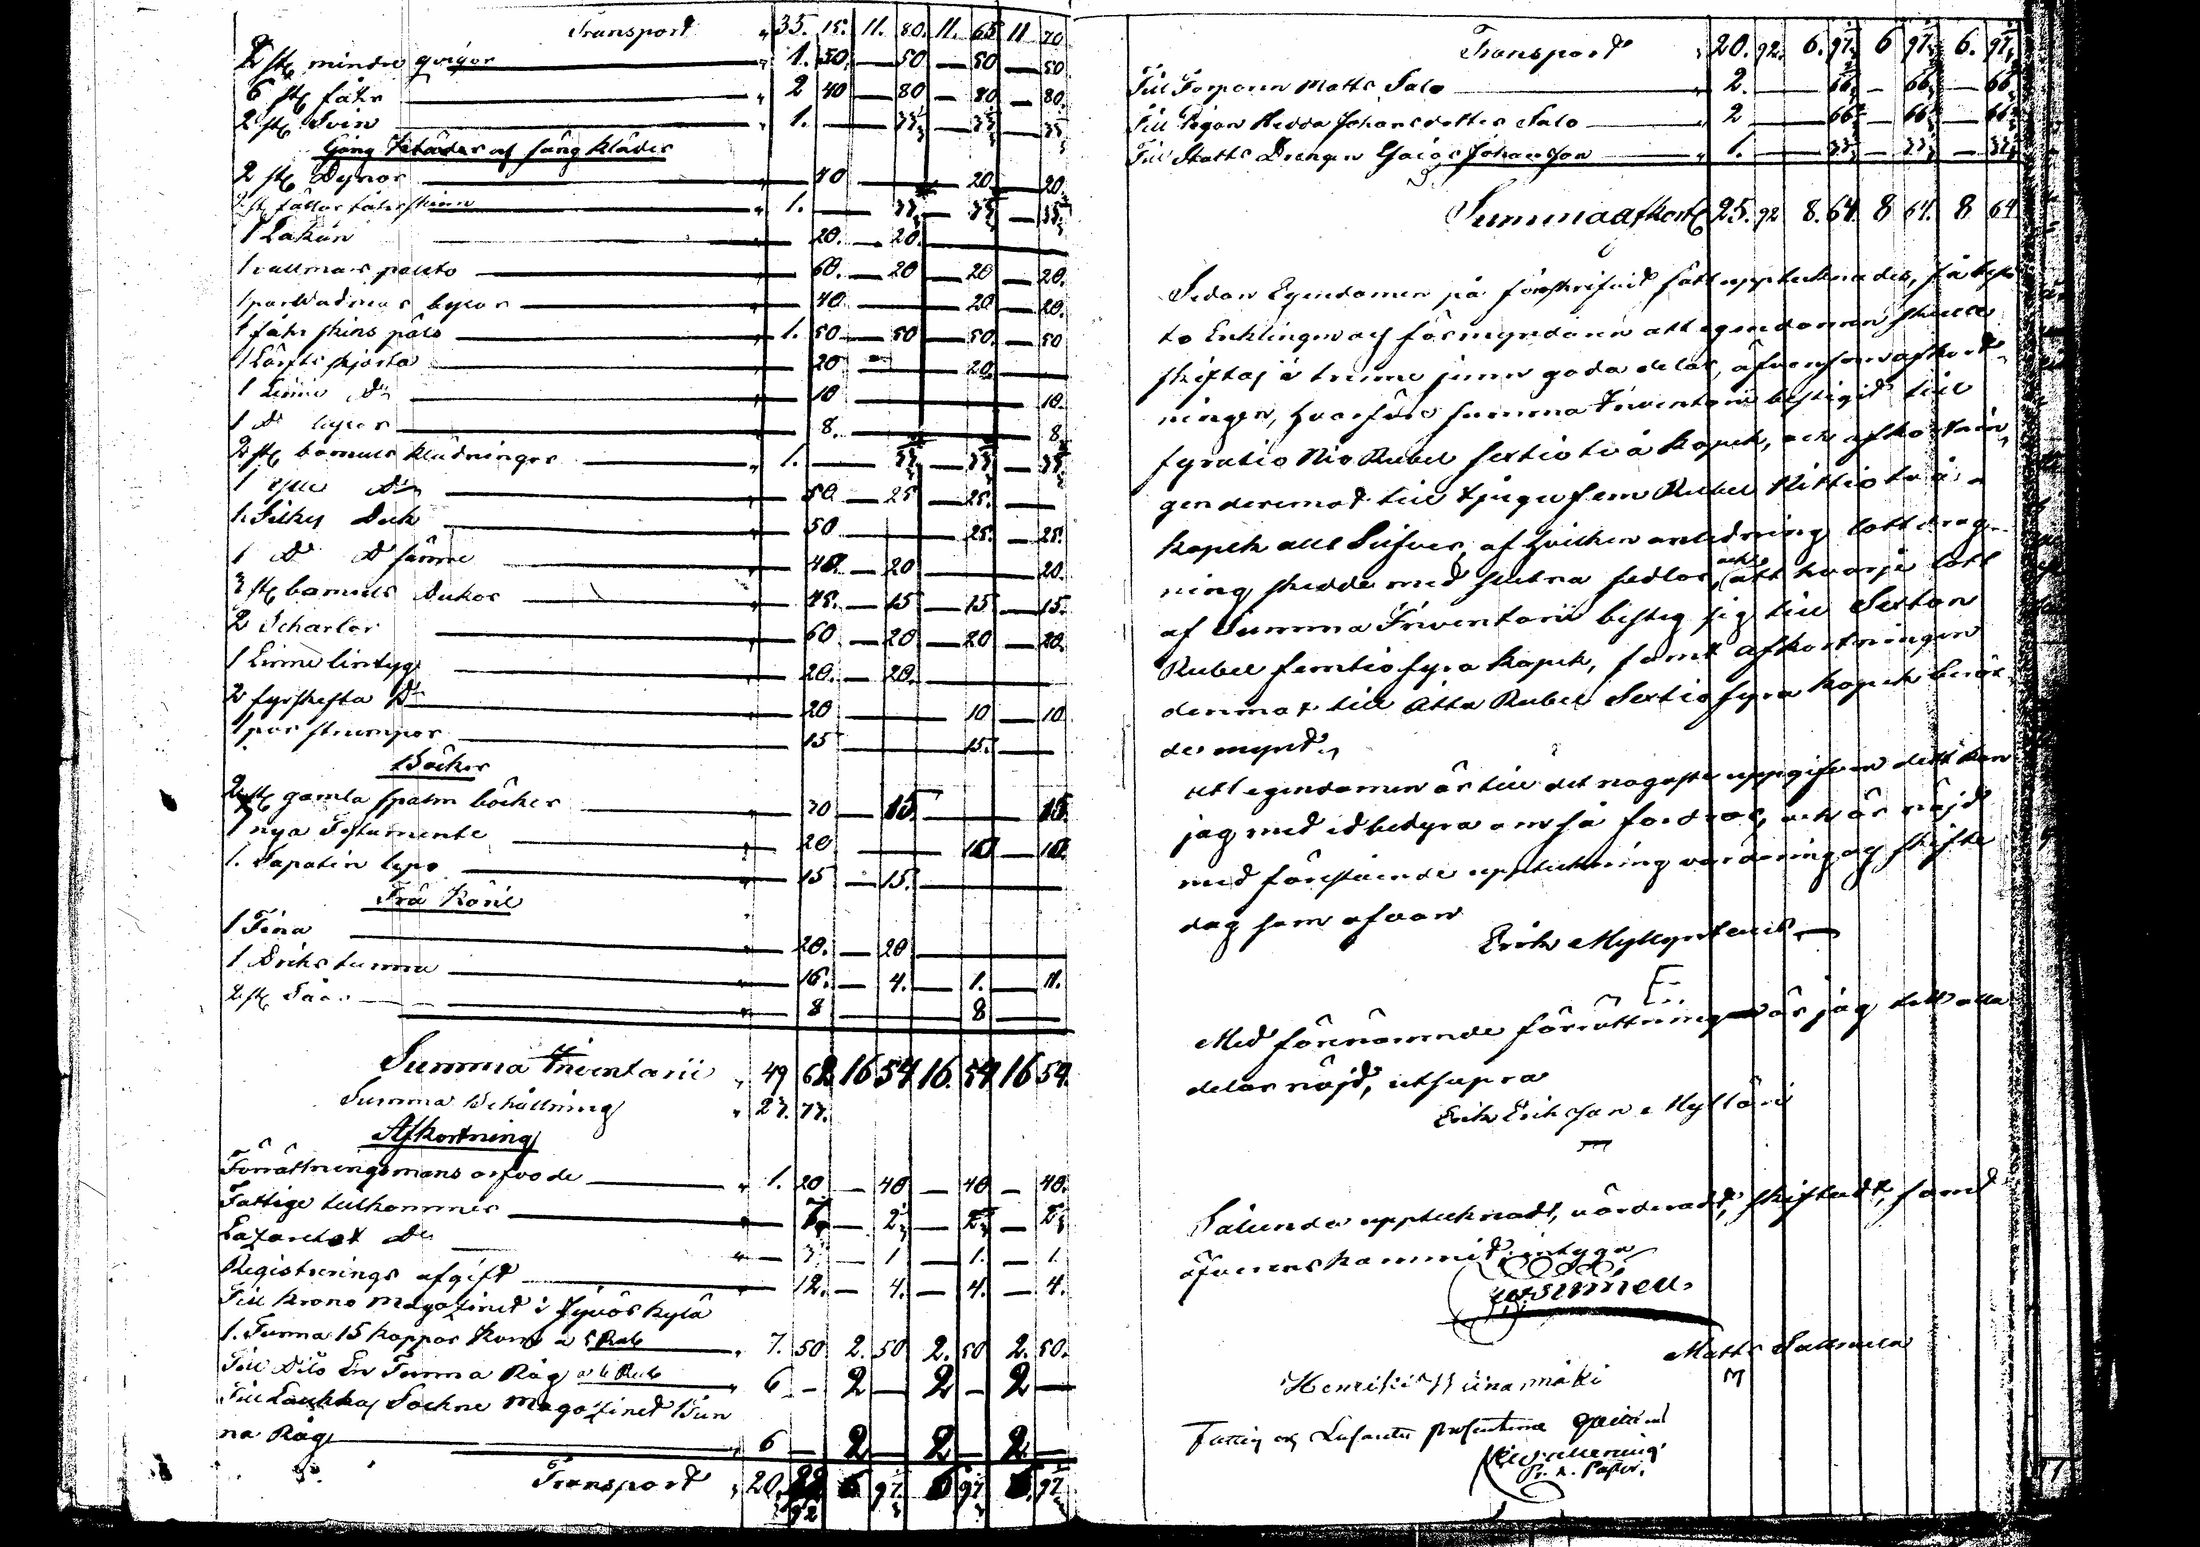 Transport 33. 15. 11. 80. 11. 65 11 70
2 st mindre qvigor 1. 50. 50 50 50
6 st fåhr 2 40 80 80 80.
2 st Svin 1. 33⅓ 33⅓ 33⅓
Gång Kläder af säng kläder
2 st Dynor 40 20. 20.
fållar fåhrskinn 1. 33⅓ 33⅓ 33⅓
1 Lakan 20. 20.
1 vallmars palto 60. 20 20 20.
1 par Vadmar byxor 40. 20 20.
1 fåhr skins päls 1. 50 50 50. 50
1 Lärfts skjorta 20 20.
1 Linne Do 10 10.
1 Do byxor 8. 8
2 st bomuls klädningar 1. 33⅓ 33⅓ 33⅓
1 ylle Do 50 25 25.
1. Silkes Duk 50 25. 25.
1 Do Do sämre 40. 20 20.
3 st bomuls Dukar 45. 15 15 15.
2 Scharlar 60 20 20 20
1 Linne lintyg 20. 20.
2 fyrskefta Do 20 10 10
1 par strumpor 15 15.
Böcker
2 st gamla psalm böcker 30 15. 15.
1 nya Testamente 20. 10 10.
1. Sapatin lepo 15 15.
Trä Käril
1 Tina 20. 20
1 Driks tunna 16. 4. 1. 11.
2 st Såar 8 8
Summa Inventarii 49 62 16 54 16. 54 16 54.
Summa Behållning 23. 77.
Afkortning
Förrättningsmans arfvode 1. 20 40 40 40.
Fattige tillkommer 7 2⅓ 2⅓ 2⅓
Lazarettet Do 3 1 1. 1.
Registrerings afgift 12. 4. 4. 4.
Till Krono Magazinet i Jyväskylä
1. Tunna 15 kappar Korn a 5 Rub 7. 50 2. 50 2. 50 2. 50.
Till Dito En Tunna Råg a 6 Rub 6 2 2 2
Till Laukkas Sockne Magazinet 1 Tun
na Råg 6 2 2 2
Transport 20. 92 6 97⅓ 6 97⅓ 6. 97⅓
Transport 20. 92. 6. 97⅓ 6 97⅓ 6. 97⅓
Till Torparen Matts Salo 2. 66⅔ 66⅔ 66⅔
Till Pigan Hedda Johansdotter Salo 2 66⅔ 66⅔ 66⅔
Till Statts Drengen Johansson 1. 33⅓ 33⅓ 33⅓
Summa afkort 25. 92 8. 64. 8 64. 8 64
Sedan Egendomen på förskrifvit sätt upptecknades, så
to Enklingen och förmyndaren att egendomen skulle
skiftas i trenne jemn goda delar, äfvensom afkort
ningen, hvarföre Summa Inventarii bestigit till
fyratio Nio Rubel sextio två kopek, och afkortnin
gen deremot till tjugu fem Rubel Nittio två
kopek allt Silfver, af hvilken anledning lottdrag
ning skedde med slutna sedlar, och att hvarje lott
af Summa Inventarii besteg sig till Sexton
Rubel femtio fyra kopek, samt afkortningen
deremot till Åtta Rubel Sextio fyra kopek berör
de mynt.
att egendomen är till det nogaste uppgifven dett kan
jag med ed betyra om så fordras, och är nöjd
med förestående uppteckning värdering och skifte
dag som ofvan
Erik
Med förenämnde förrättning är jag till alla
delar nöjd, utsupra
Erik Eriksson Mylläri
Sålunda upptecknadt, värderadt, skiftadt, samt
öfverenskommit, intyga
Matts
Henriki Niinamäki
Fattig och Lasaretts procenterne